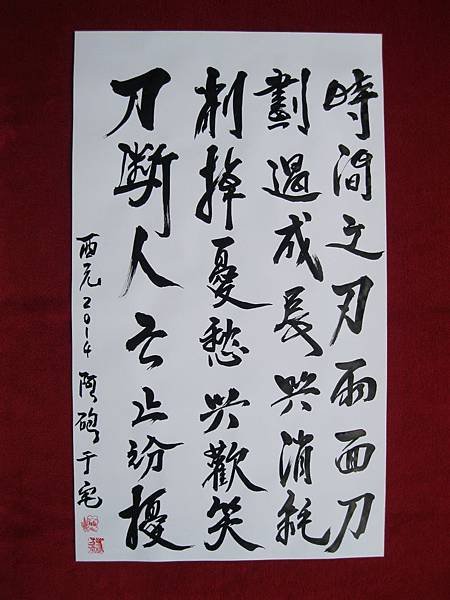 時間之刃兩面刀
劃過成長與消耗
削掉憂愁與歡笑
刀斷人亡止紛擾
西元2014 阿砲于宅